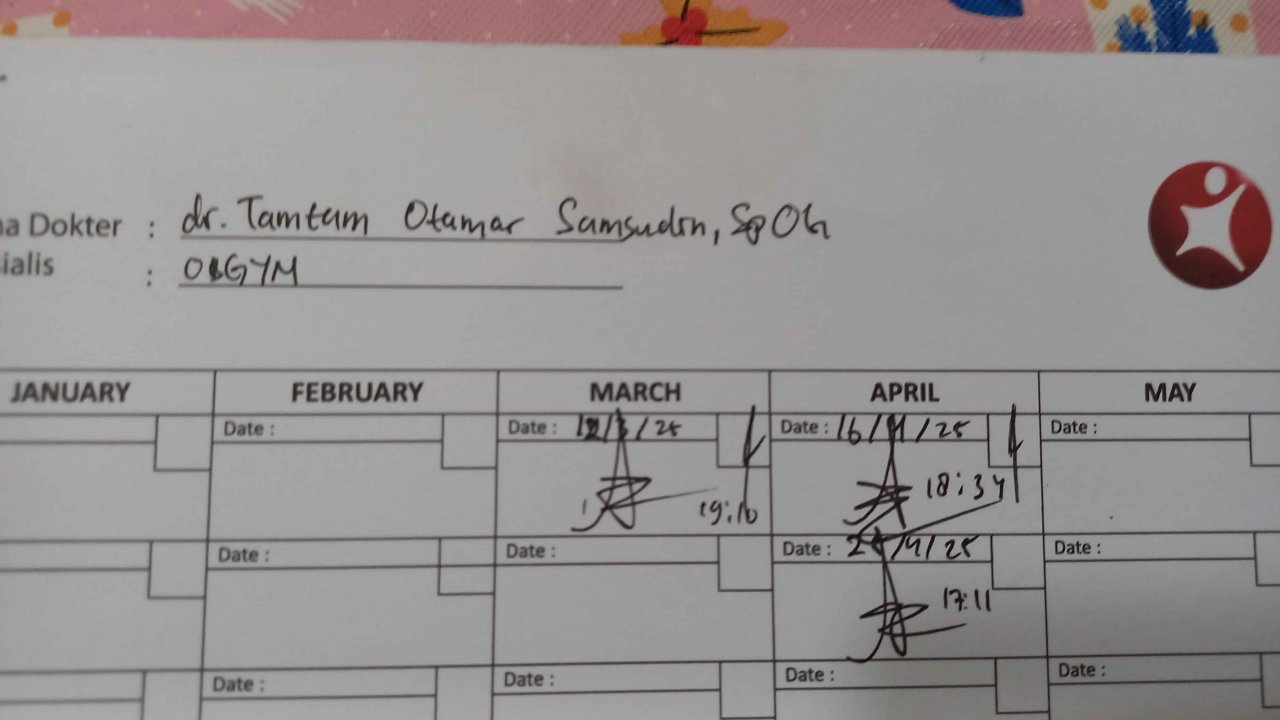 na Dokter : dr. Tamtam Otamar Samsudin, SpOG
ialis : OBGYM
JANUARY FEBRUARY MARCH APRIL MAY
Date : Date : 12/3/25 Date : 16/4/25 Date :
19:10 18:34
Date : Date : Date : 24/4/25 Date :
17:11
Date : Date : Date : Date :